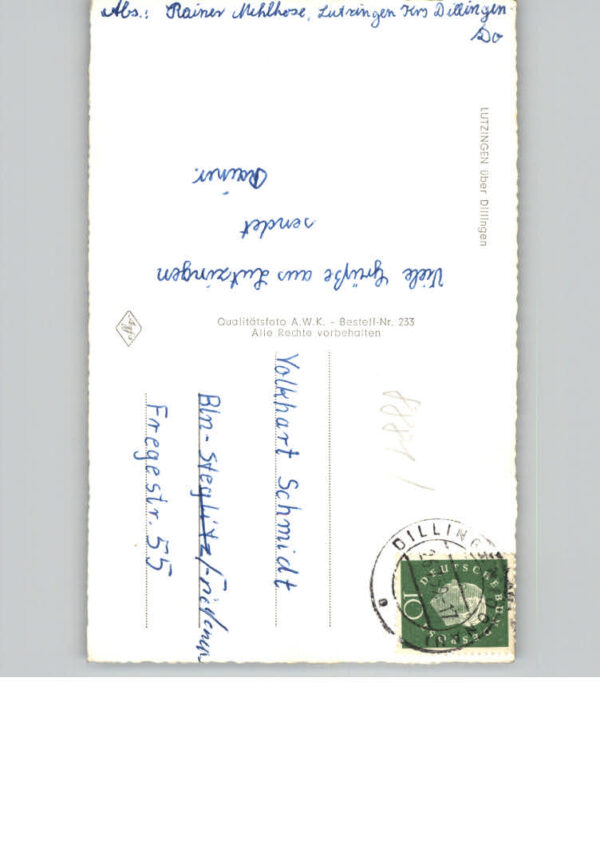 Abs.: Rainer Mehlhose, Lutzingen Krs Dillingen
Do
LUTZINGEN über Dillingen
Viele Grüße aus Lutzingen
sendet
Rainer.
Qualitätsfoto A.W.K. - Bestell-Nr. 233
Alle Rechte vorbehalten
Volkhart Schmidt
Bln-Steglitz/Friedenau
Fregestr. 55
DILLINGEN
DEUTSCHE BUNDESPOST
10